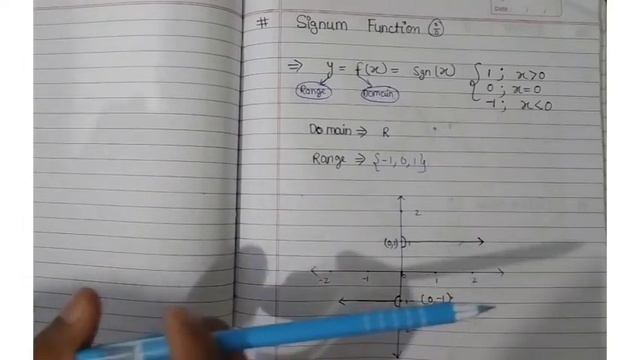 Date
# Signum Function
⇒ y = f(x) = Sgn(x) { 1 ; x>0
0 ; x=0
-1 ; x<0
Range Domain
Domain ⇒ R
Range ⇒ {-1, 0, 1}
2
(0,1) 1
-2 -1 1 2
(0-1)